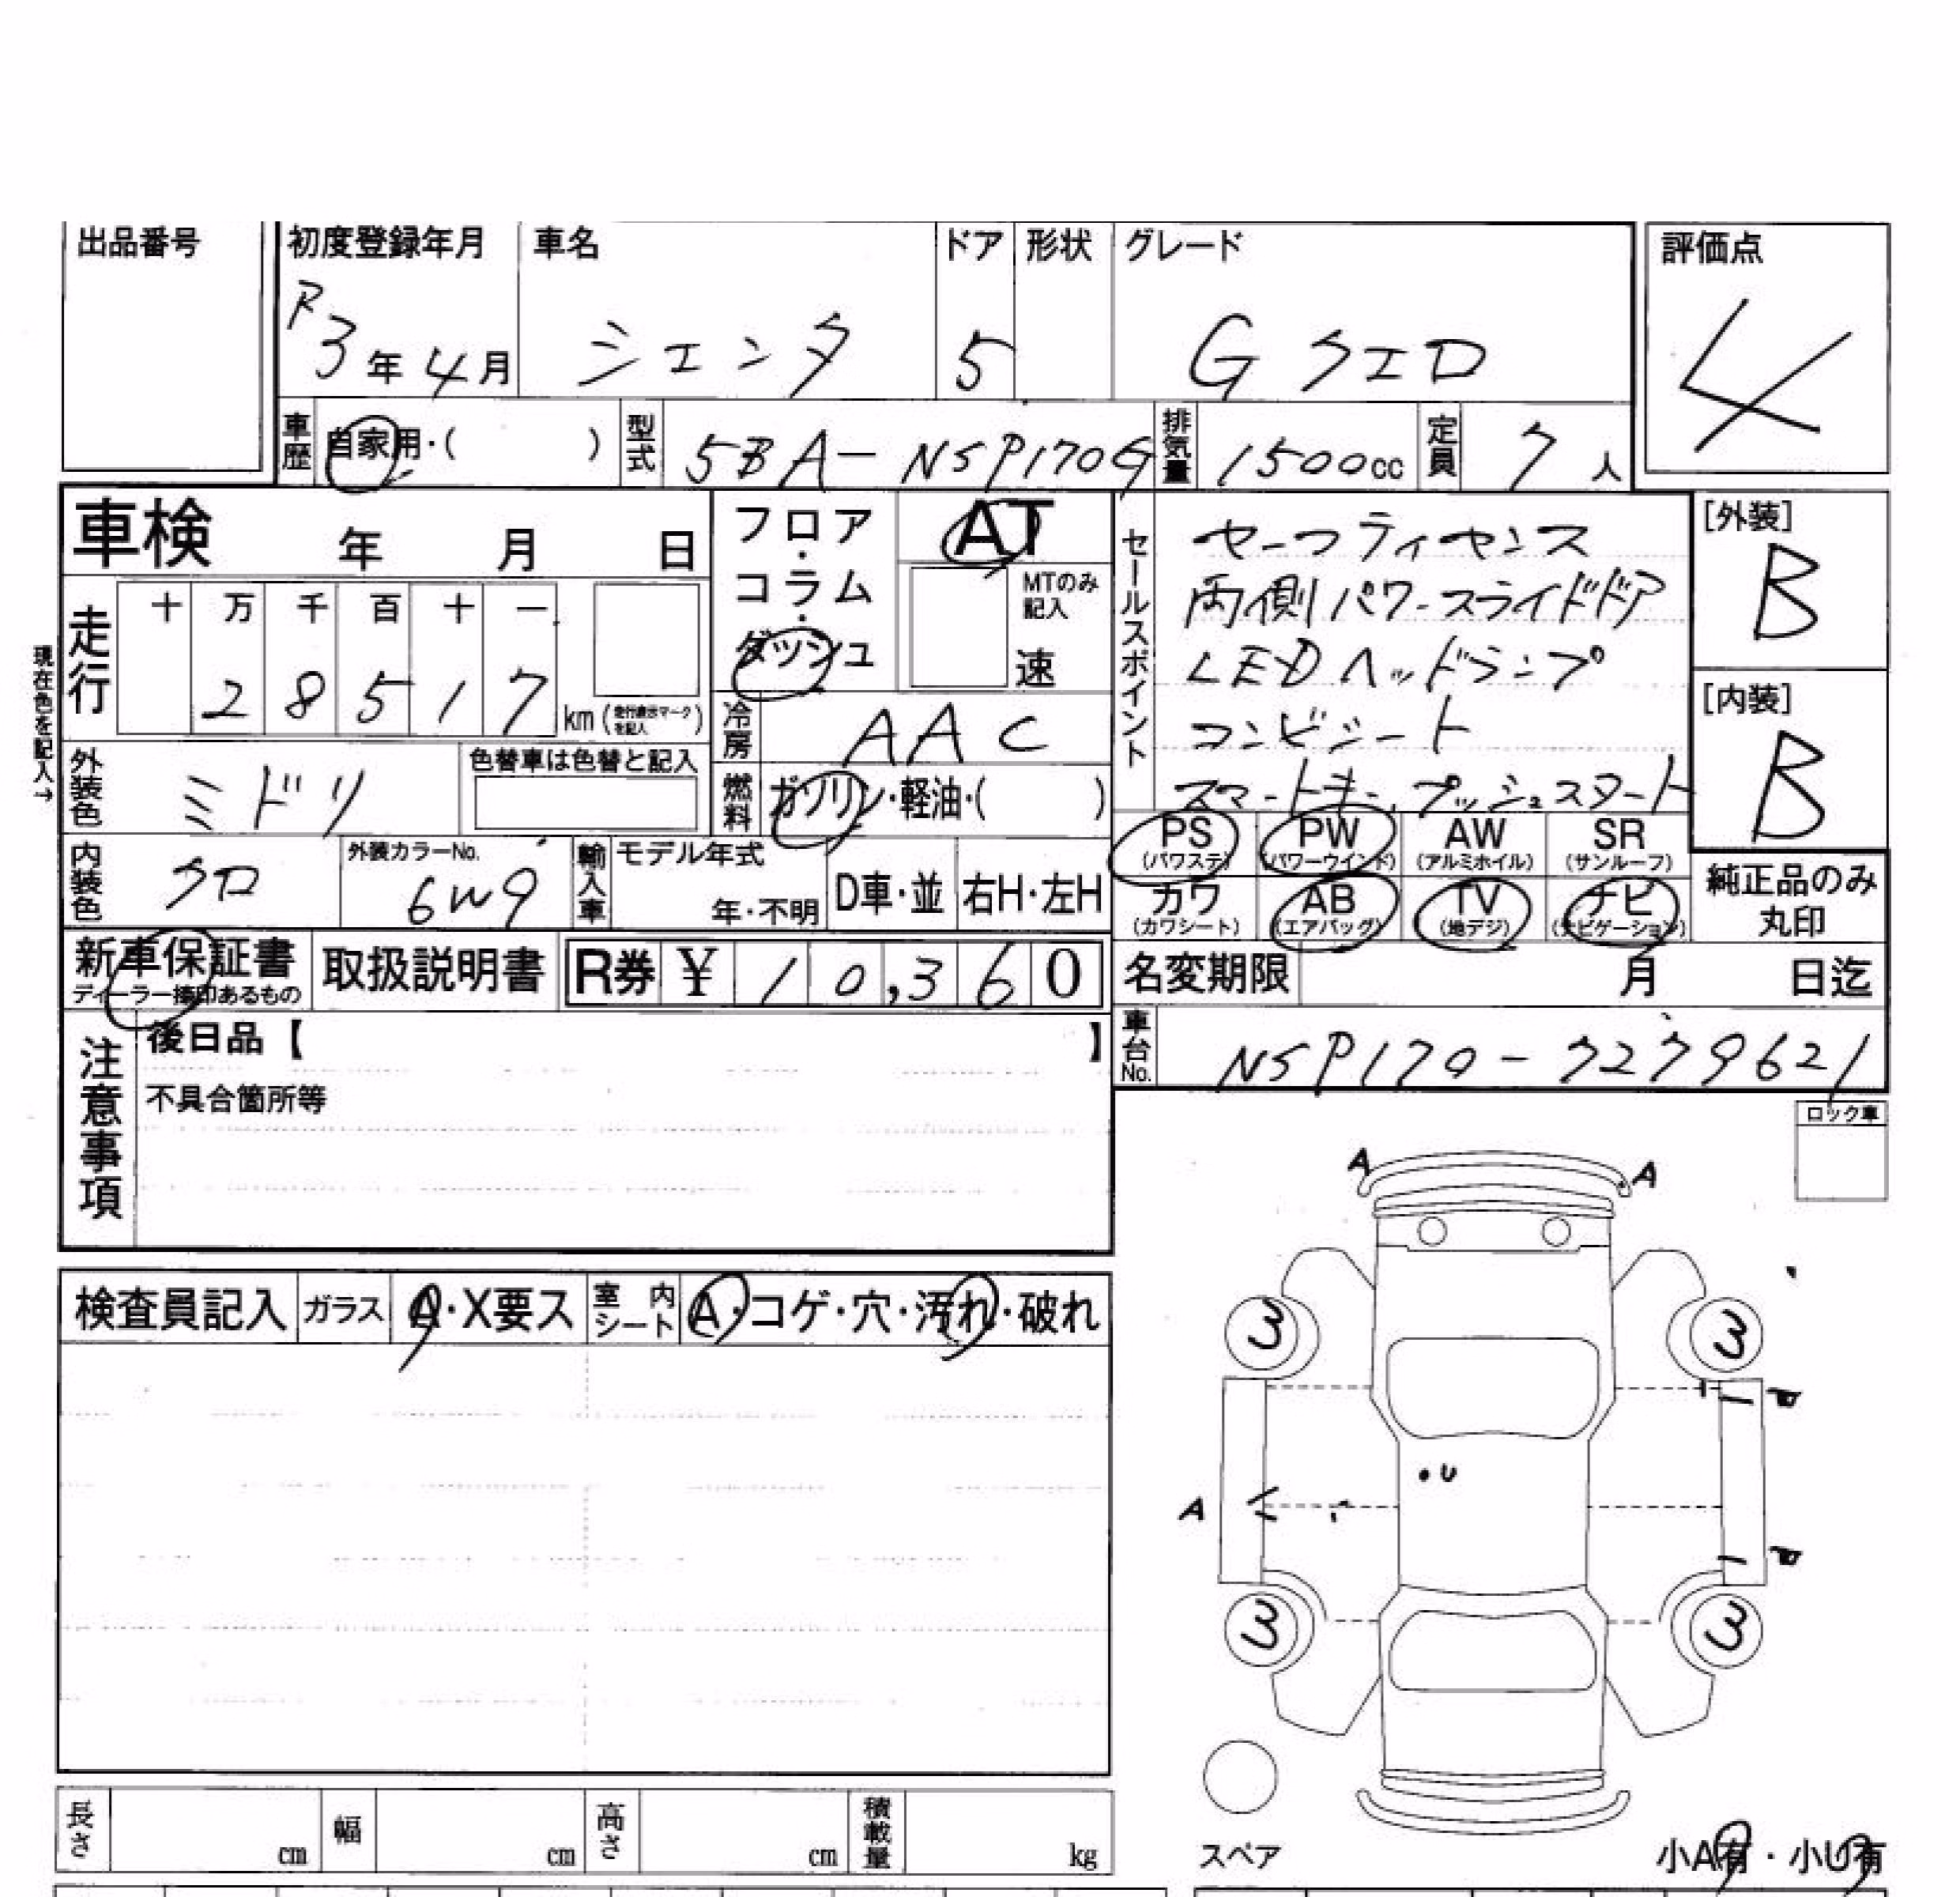 出品番号
初度登録年月 車名 ドア 形状 グレード 評価点
R3年4月 シエンタ 5 Gクエロ 4
車歴 自家用・( ) 型式 5BA-NSP170G 排気量 1500cc 定員 7人
車検 年 月 日
フロア・コラム・ダッシュ
AT
MTのみ記入
速
セールスポイント
セーフティセンス
両側パワースライドドア
LEDヘッドランプ
コンビシート
スマートキー,プッシュスタート
[外装]
B
[内装]
B
現在色を記入→
走行 十 万 千 百 十 一
2 8 5 1 7 km(走行表示マークを記入)
冷房 AAC
外装色 ミドリ 色替車は色替と記入
燃料 ガソリン・軽油・( )
内装色 クロ 外装カラーNo. 6W9
輸入車 モデル年式 年・不明 D車・並 右H・左H
PS (パワステ) PW (パワーウインド) AW (アルミホイル) SR (サンルーフ)
カワ (カワシート) AB (エアバッグ) TV (地デジ) ナビ (ナビゲーション)
純正品のみ丸印
新車保証書 ディーラー捺印あるもの 取扱説明書 R券 ¥ 10,360
名変期限 月 日迄
車台No. NSP170-7279621
注意事項
後日品【 】
不具合箇所等
ロック車
検査員記入 ガラス A・X要ス 室内シート A・コゲ・穴・汚れ・破れ
A A
3 3
U
A
3 3
スペア
小A有・小U有
長さ cm 幅 cm 高さ cm 積載量 kg